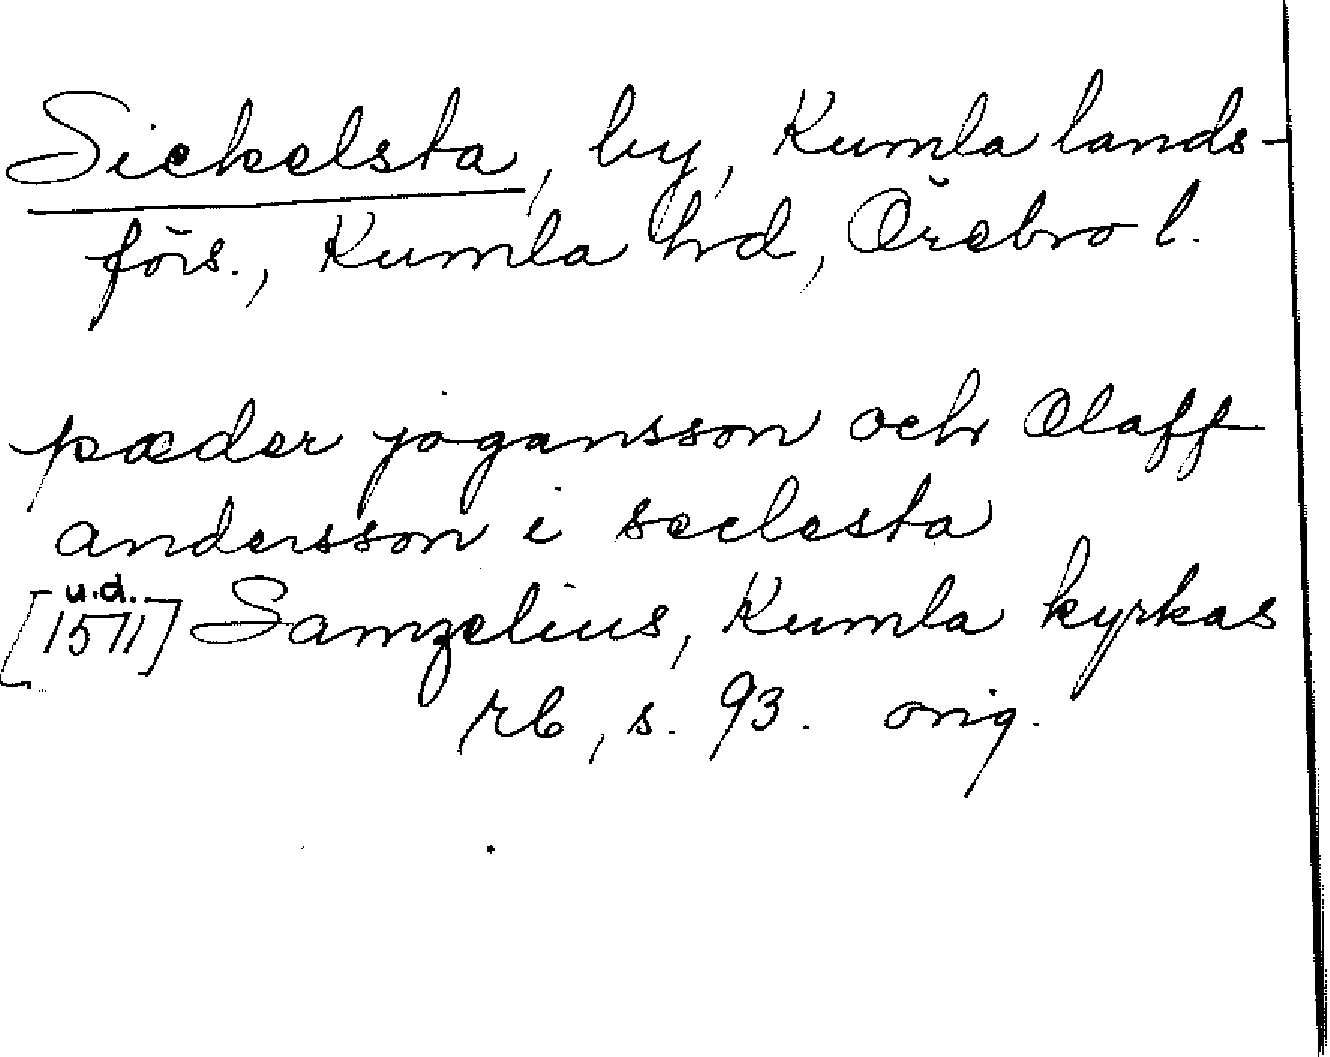 Sickelsta, by, Kumla lands-
förs., Kumla hd, Örebro l.
pæder jogansson och Olaff
andersson i seclesta
[u.d. 1511] Samzelius, Kumla kyrkas
rb, s. 93. orig.